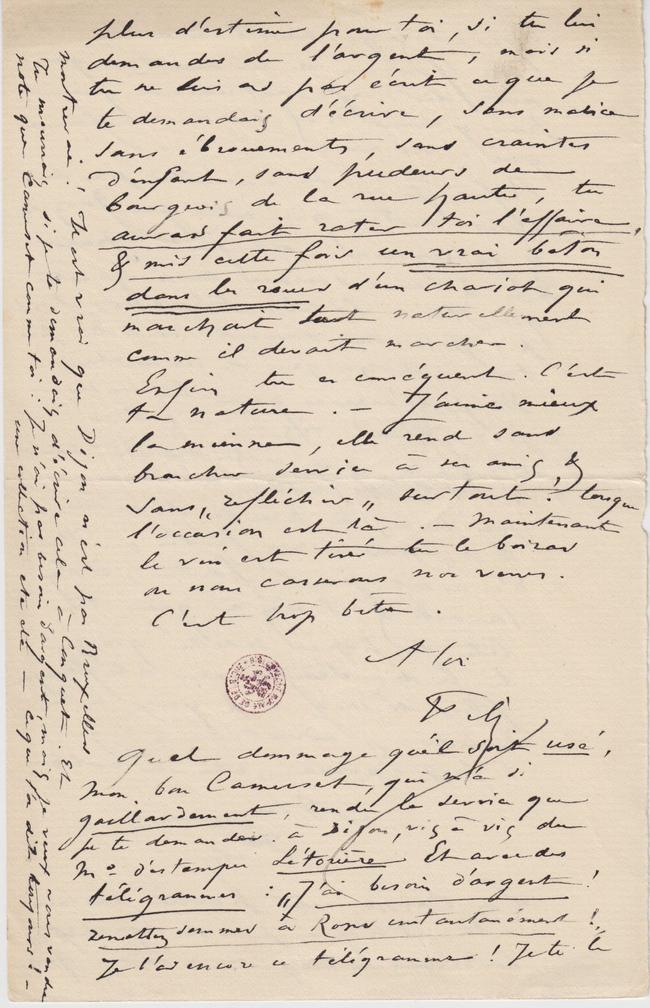 plus d'estime pour toi, si tu lui
demandes de l'argent, mais si
tu ne lui as pas écrit ce que je
te demandais d'écrire, sans malice
sans ébrouements, sans craintes
d'enfant, sans pudeurs de
bourgeois de la rue haute, tu
auras fait rater toi l'affaire,
& mis cette fois un vrai bâton
dans les roues d'un chariot qui
marchait tout naturellement
comme il devait marcher.
Enfin tu es conséquent. C'est
ta nature. — J'aime mieux
la mienne, elle rend sans
broncher service à ses amis, &
sans „réfléchir„ surtout! lorsque
l'occasion est là. — Maintenant
le vin est tiré tu le boiras
ou nous casserons nos verres.
C'est trop bête.
A toi
Fély
Quel dommage qu'il soit usé,
mon bon Camuset, qui m'a si
gaillardement, rendu le service que
je te demandais à Dijon, vis à vis du
Md d'estampes Létorière Et avec des
télégrammes : „J'ai besoin d'argent!
remettez sommes à Rops instantanément!„
Je l'ai encore ce télégramme! Je te le
montrerai! Il est vrai que Dijon n'est pas Bruxelles
Tu mourrais si je te demandais d'écrire cela à Conquet. Et
note que Camuset comme toi: je n'ai pas besoin d'argent, mais je veux vous vendre
une collection etc etc — ce que j'ai dit toujours! —